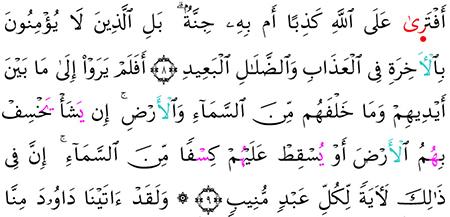 أَفْتَرِىٰ عَلَى ٱللَّهِ كَذِبًا أَم بِهِۦ جِنَّةُۢ ۗ بَلِ ٱلَّذِينَ لَا يُؤْمِنُونَ
بِٱلْأَخِرَةِ فِى ٱلْعَذَابِ وَٱلضَّلَٰلِ ٱلْبَعِيدِ ﴿٨﴾ أَفَلَمْ يَرَوْا۟ إِلَىٰ مَا بَيْنَ
أَيْدِيهِمْ وَمَا خَلْفَهُم مِّنَ ٱلسَّمَآءِ وَٱلْأَرْضِ ۚ إِن يَشَأْ يَخْسِفْ
بِهُمُ ٱلْأَرْضَ أَوْ يُسْقِطْ عَلَيْهُمْ كِسْفًا مِّنَ ٱلسَّمَآءِ ۚ إِنَّ فِى
ذَٰلِكَ لَأٓيَةً لِّكُلِّ عَبْدٍ مُّنِيبٍ ﴿٩﴾ ۞ وَلَقَدْ ءَاتَيْنَا دَاوُۥدَ مِنَّا